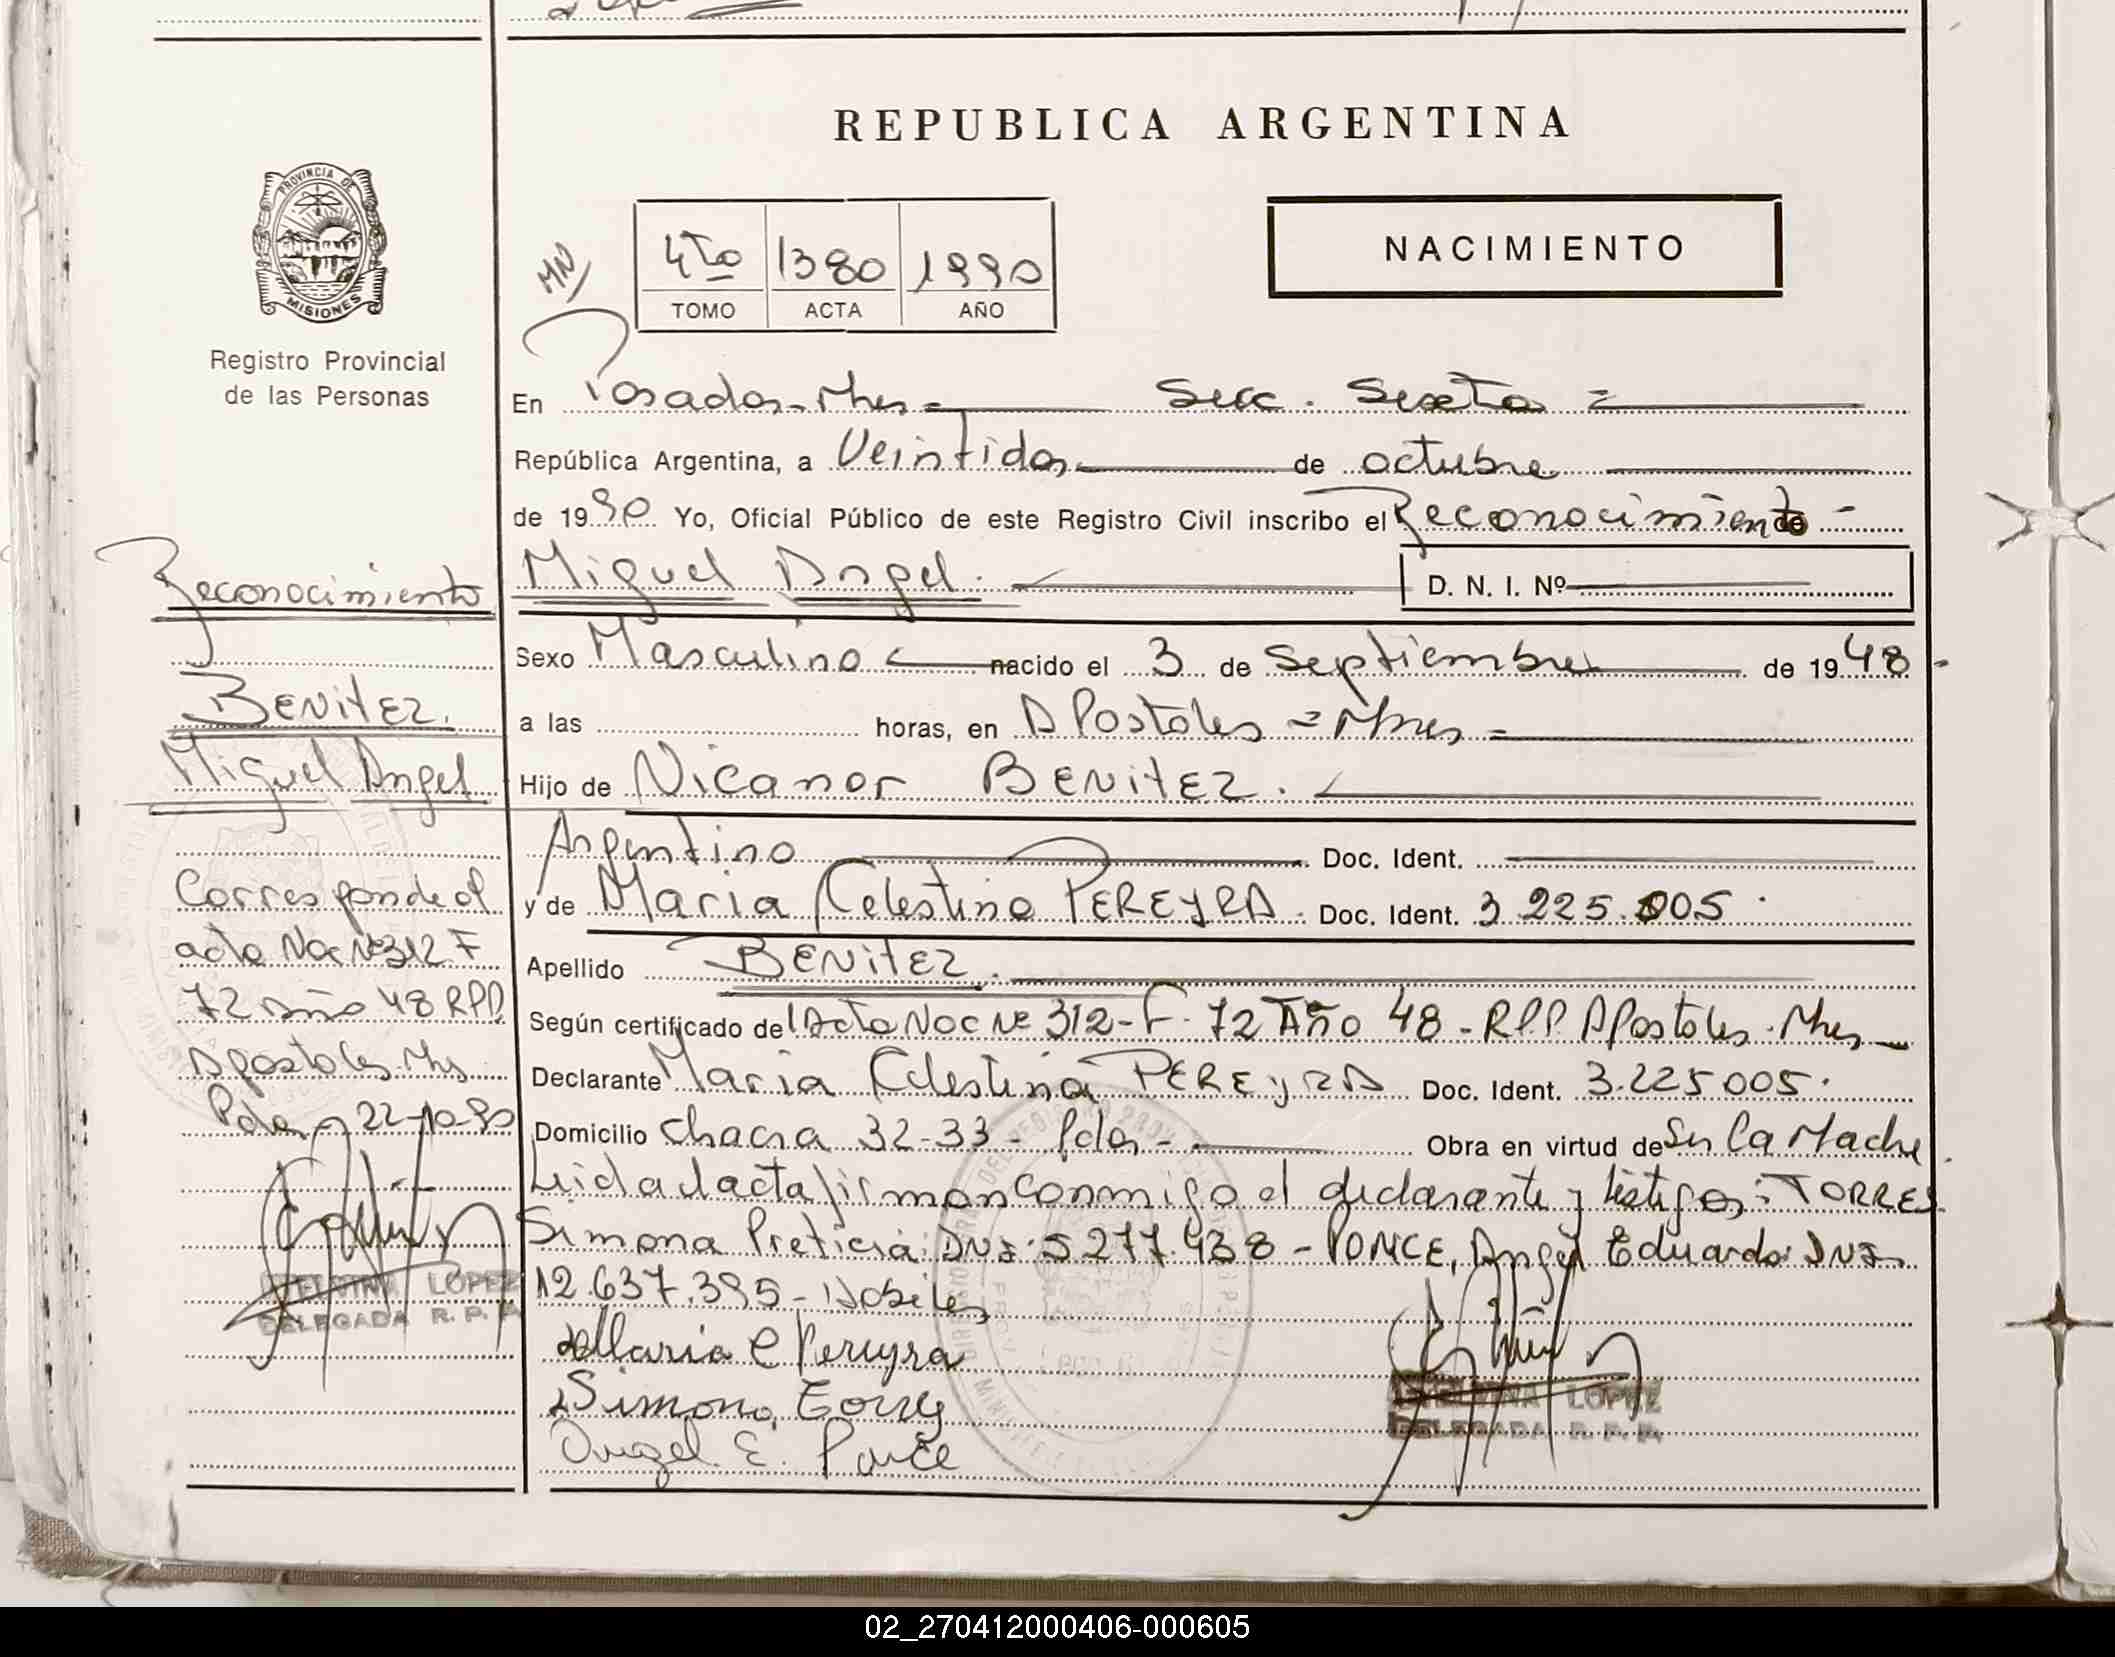 REPUBLICA ARGENTINA
PROVINCIA DE
MISIONES
Registro Provincial
de las Personas
MN
4to 1380 1990
TOMO ACTA AÑO
NACIMIENTO
En Posadas-Mnes= Secc. Sexta =
República Argentina, a Veintidos de octubre
de 1990 Yo, Oficial Público de este Registro Civil inscribo el Reconocimiento -
Miguel Angel. D. N. I. Nº
Sexo Masculino nacido el 3 de Septiembre de 1948
a las horas, en Apostoles = Mnes =
Hijo de Nicanor BENitEZ.
Argentino Doc. Ident.
y de Maria Celestina PEREYRA. Doc. Ident. 3.225.005.
Apellido BENitEZ.
Según certificado de Acta Nac Nº 312-F-72 Año 48-R.P.P. Apostoles-Mnes
Declarante Maria Celestina PEREYRA Doc. Ident. 3.225005.
Domicilio chacra 32-33- Pdas- Obra en virtud de Ser la Madre
Leida el acta firman conmigo el declarante y testigos: TORRES
Simona DNI: 5.277.438 - PONCE, Angel Eduardo DNI
12.637.395 - Habiles
Maria C Pereyra
Simona Torres
Angel. E. Ponce
LOPEZ
DELEGADA R. P. P.
Reconocimiento
BENitEZ.
Miguel Angel
Corresponde al
acta Nac Nº312 F
72 Año 48 RPP
Apostoles-Mnes
Pdas 22-10-90
LOPEZ
DELEGADA R. P. P.
02_270412000406-000605